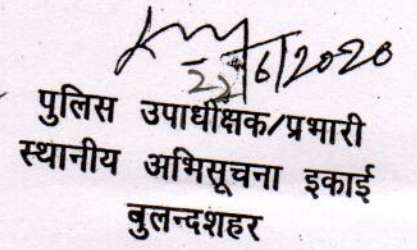 22/6/2020
पुलिस उपाधीक्षक/प्रभारी
स्थानीय अभिसूचना इकाई
बुलन्दशहर